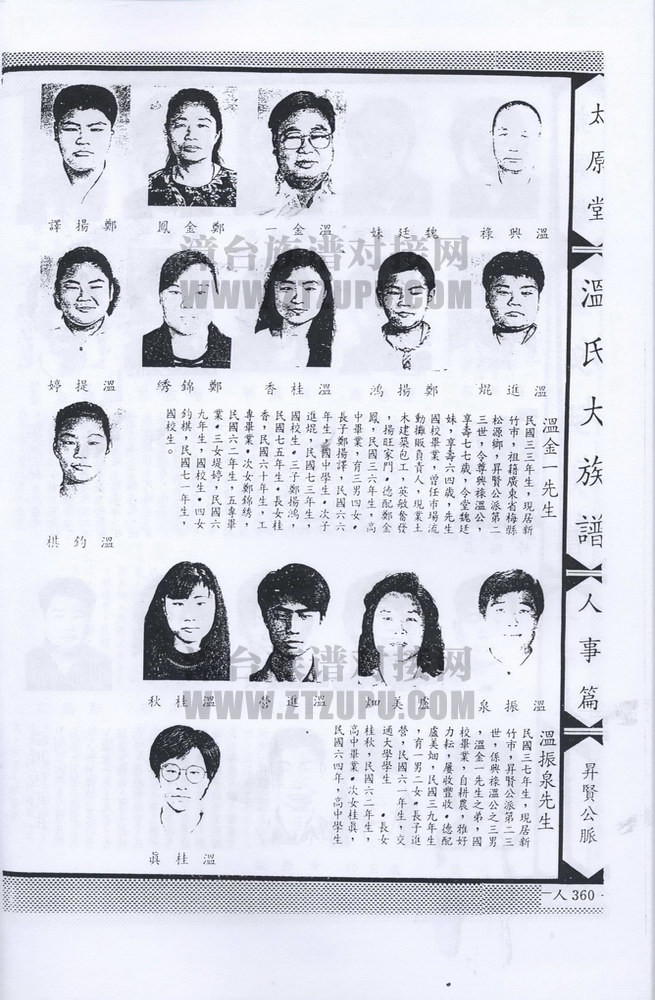 太原堂
溫氏大族譜
人事篇
昇賢公脈
溫興祿
魏廷妹
溫金一
鄭金鳳
鄭揚譯
溫進焜
鄭揚鴻
溫桂香
鄭錦綉
溫提婷
溫鈞棋
溫金一先生
民國三三年生，現居新
竹市，祖籍廣東省梅縣
松源鄉，昇賢公派第二
三世，令尊興祿溫公，
享壽七七歲，令堂魏廷
妹，享壽六四歲，先生
國校畢業，曾任市場流
動攤販負責人，現業土
木建築包工，英敏奮發
，揚旺家門。德配鄭金
鳳，民國三六年生，高
中畢業，育三男四女。
長子鄭揚譯，民國六六
年生，國中學生。次子
進焜，民國七三年生，
國校生。三子鄭揚鴻，
民國七五年生。長女桂
香，民國六十年生，工
專畢業。次女鄭錦綉，
民國六二年生，五專畢
業。三女堤婷，民國六
九年生，國校生。四女
鈞棋，民國七一年生，
國校生。
溫振泉
盧美畑
溫進營
溫桂秋
溫桂眞
溫振泉先生
民國三七年生，現居新
竹市，昇賢公派第二三
世，係興祿溫公之三男
，溫金一先生之弟，國
校畢業，自耕農，雅好
力耘，屢收豐收。德配
盧美畑，民國三九年生
，育一男二女。長子進
營，民國六一年生，交
通大學學生。長女
桂秋，民國六二年生，
高中畢業。次女桂眞，
民國六四年，高中學生
一人 360
漳台族谱对接网
WWW.ZTZUPU.COM
漳台族谱对接网
WWW.ZTZUPU.COM